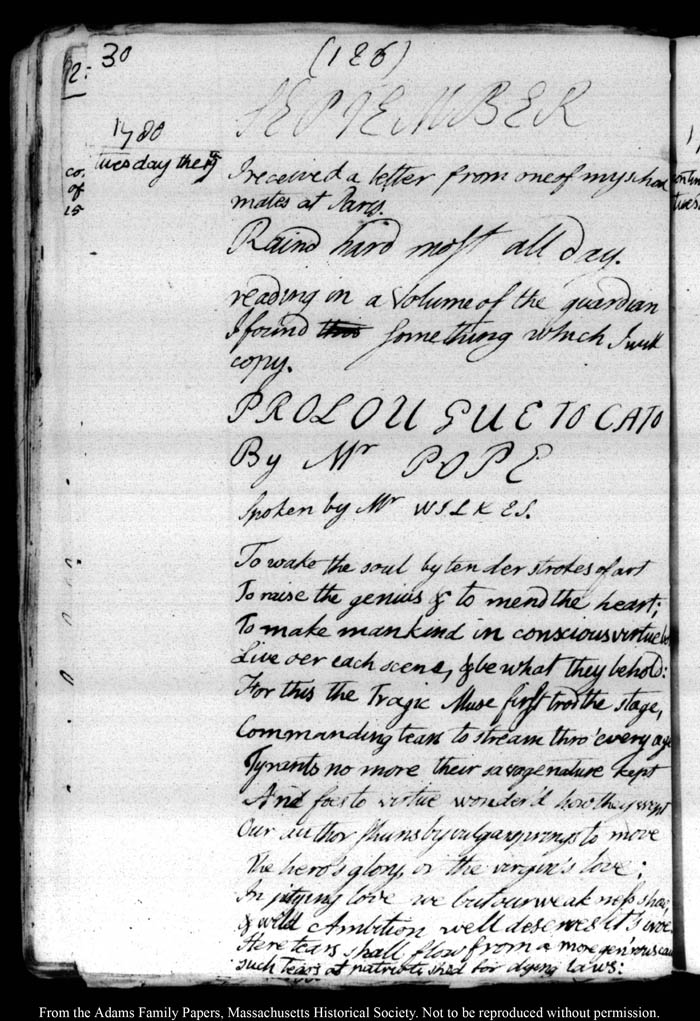 30
(126)
12:
SEPTEMBER
1780
tuesday the
co. of 15
I received a letter from one of my school
mates at Paris.
Raind hard most all day.
reading in a Volume of the guardian
I found this something which I will
copy.
PROLOUGUE TO CATO
By Mr POPE
Spoken by Mr WILKES.
To wake the soul by tender strokes of art
To raise the genius & to mend the heart;
To make mankind in conscious virtue
Live oer each scene, & be what they behold:
For this the Tragic Muse first trod the stage,
Commanding tears to stream thro' every age
Tyrants no more their savage nature kept
And foes to virtue wonder'd how they wept
Our author shuns by vulgar springs to move
The hero's glory, or the virgin's love;
In pitying love we but our weakness show,
& wild Ambition well deserves it's woe.
Here tears shall flow from a more gen'rous cau
such tears as patriots shed for dying laws:
From the Adams Family Papers, Massachusetts Historical Society. Not to be reproduced without permission.